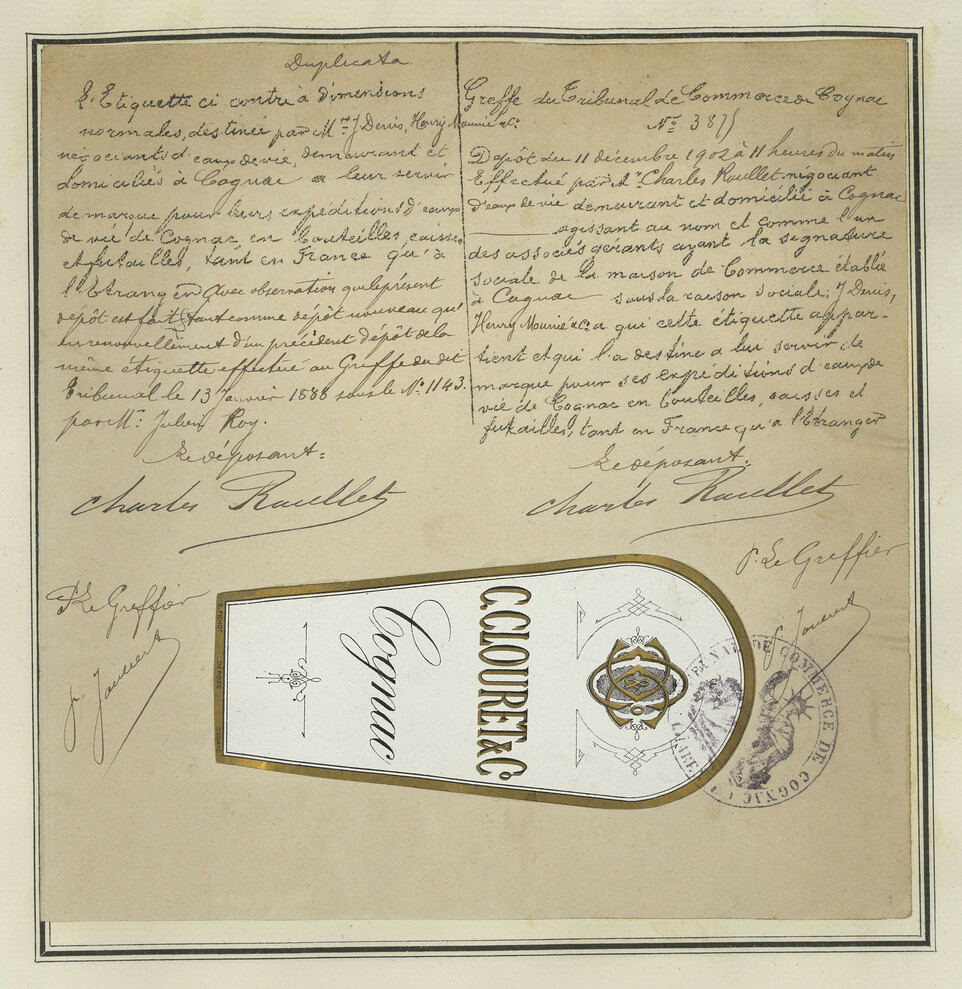 Duplicata
L'Etiquette ci contre à dimensions
normales, destinée par Mrs J Denis, Henry Mounié & Cº
négociants d'eaux de vie, demeurant et
domiciliés à Cognac a leur servir
de marque pour leurs expéditions d'eaux
de vie de Cognac en bouteilles caisses
et futailles, tant en France qu'à
l'Etranger Avec observation que le présent
dépôt est fait tant comme dépôt nouveau qu'
en renouvellement d'un précédent dépôt de la
même étiquette effectué au Greffe du dit
Tribunal le 13 Janvier 1888 sous le Nº 1143.
par Mr Julien Roy.
Le déposant:
Charles Roullet
P. Le Greffier
Greffe du Tribunal de Commerce de Cognac
Nº 3875
Dépôt du 11 décembre 1902 à 11 heures du matin
Effectué par Mr Charles Roullet négociant
d'eaux de vie demeurant et domicilié à Cognac
agissant au nom et comme l'un
des associés gérants ayant la signature
sociale de la maison de Commerce établie
à Cognac sous la raison sociale: J Denis,
Henry Mounié & Cº a qui cette étiquette appar-
tient et qui l'a destine a lui servir de
marque pour ses expéditions d'eaux de
vie de Cognac en bouteilles, caisses et
futailles, tant en France qu'a l'Etranger
Le déposant:
Charles Roullet
P. Le Greffier
C. CLOURET & Cº
Cognac
DÉPOSÉ
COGNAC
DE COMMERCE DE COGNAC